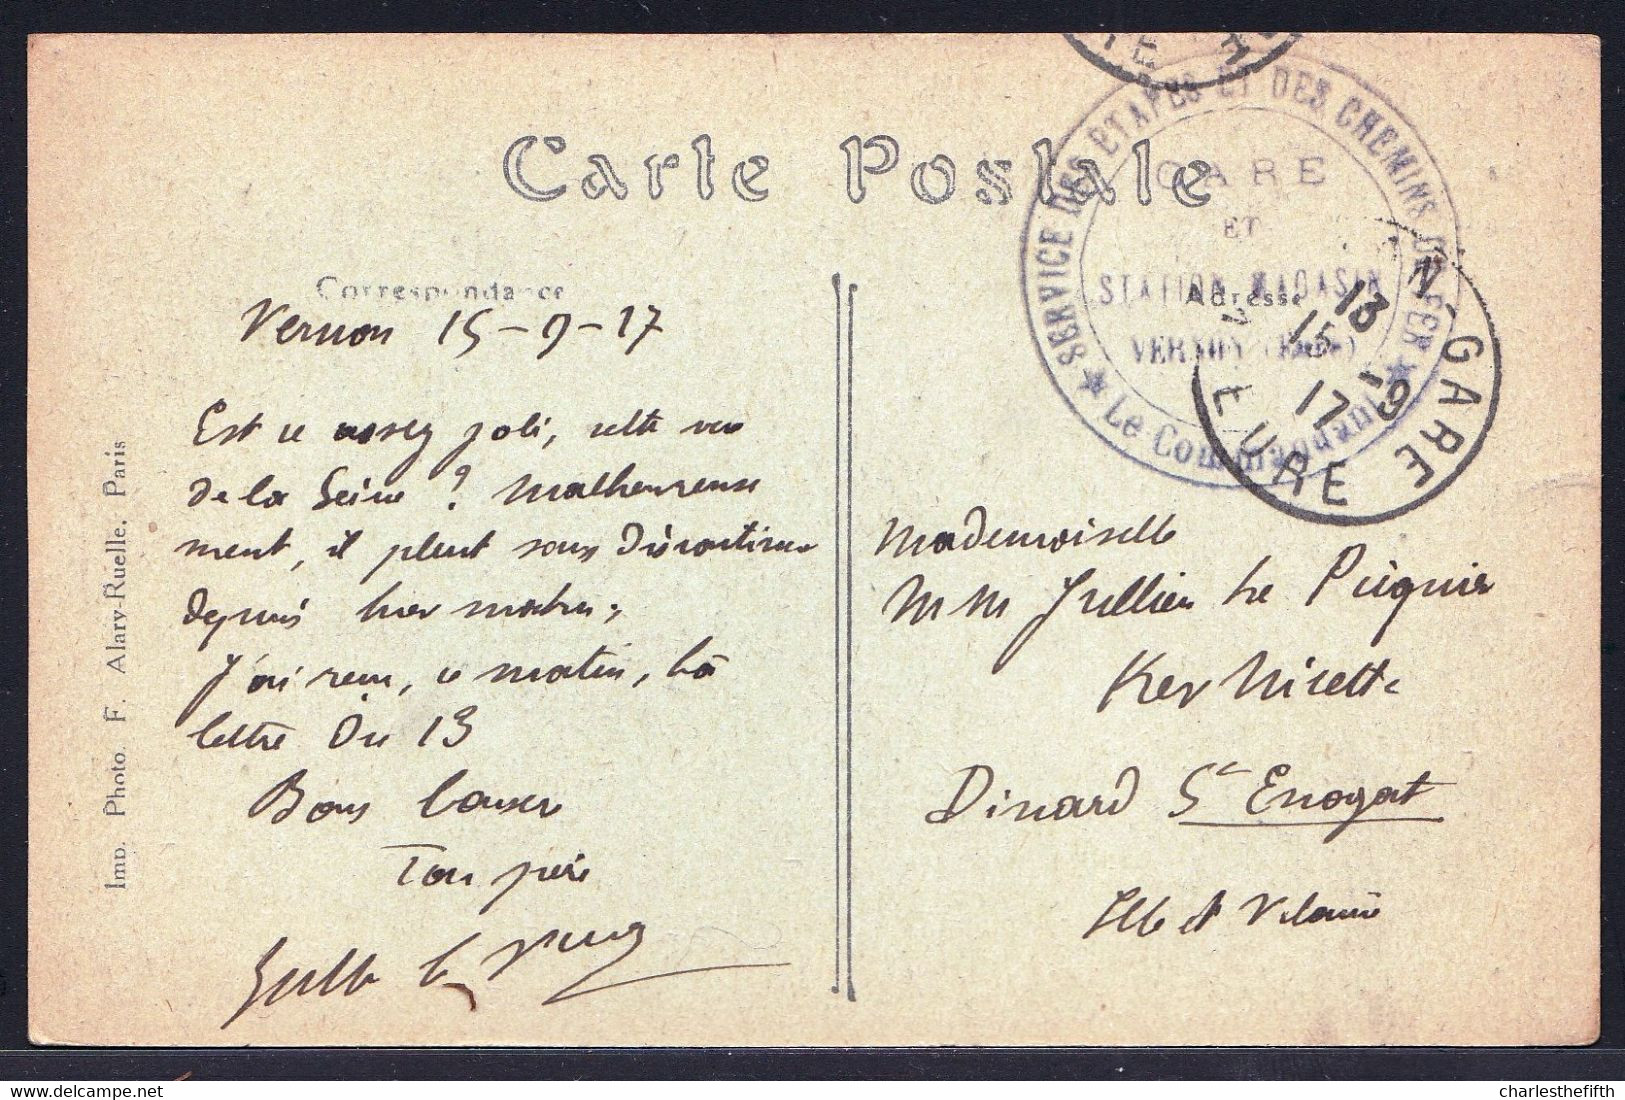 Carte Postale
SERVICE DES ETAPES ET DES CHEMINS DE FER
GARE
ET
STATION MAGASIN
VERNON (Eure)
★ Le Commandant ★
N-GARE
13
15-9
17
EURE
Correspondance
Adresse
Vernon 15-9-17
Est ce assez joli, cette vue
de la Seine ? Malheureuse
ment, il pleut sans discontinuer
depuis hier matin.
J'ai reçu, ce matin, ta
lettre du 13
Bons baisers
Ton père
Mademoiselle
M M Jullien Le Picquier
Ker Nicette
Dinard St Enogat
Ille et Vilaine
Imp. Photo F. Alary-Ruelle. Paris
charlesthefifth